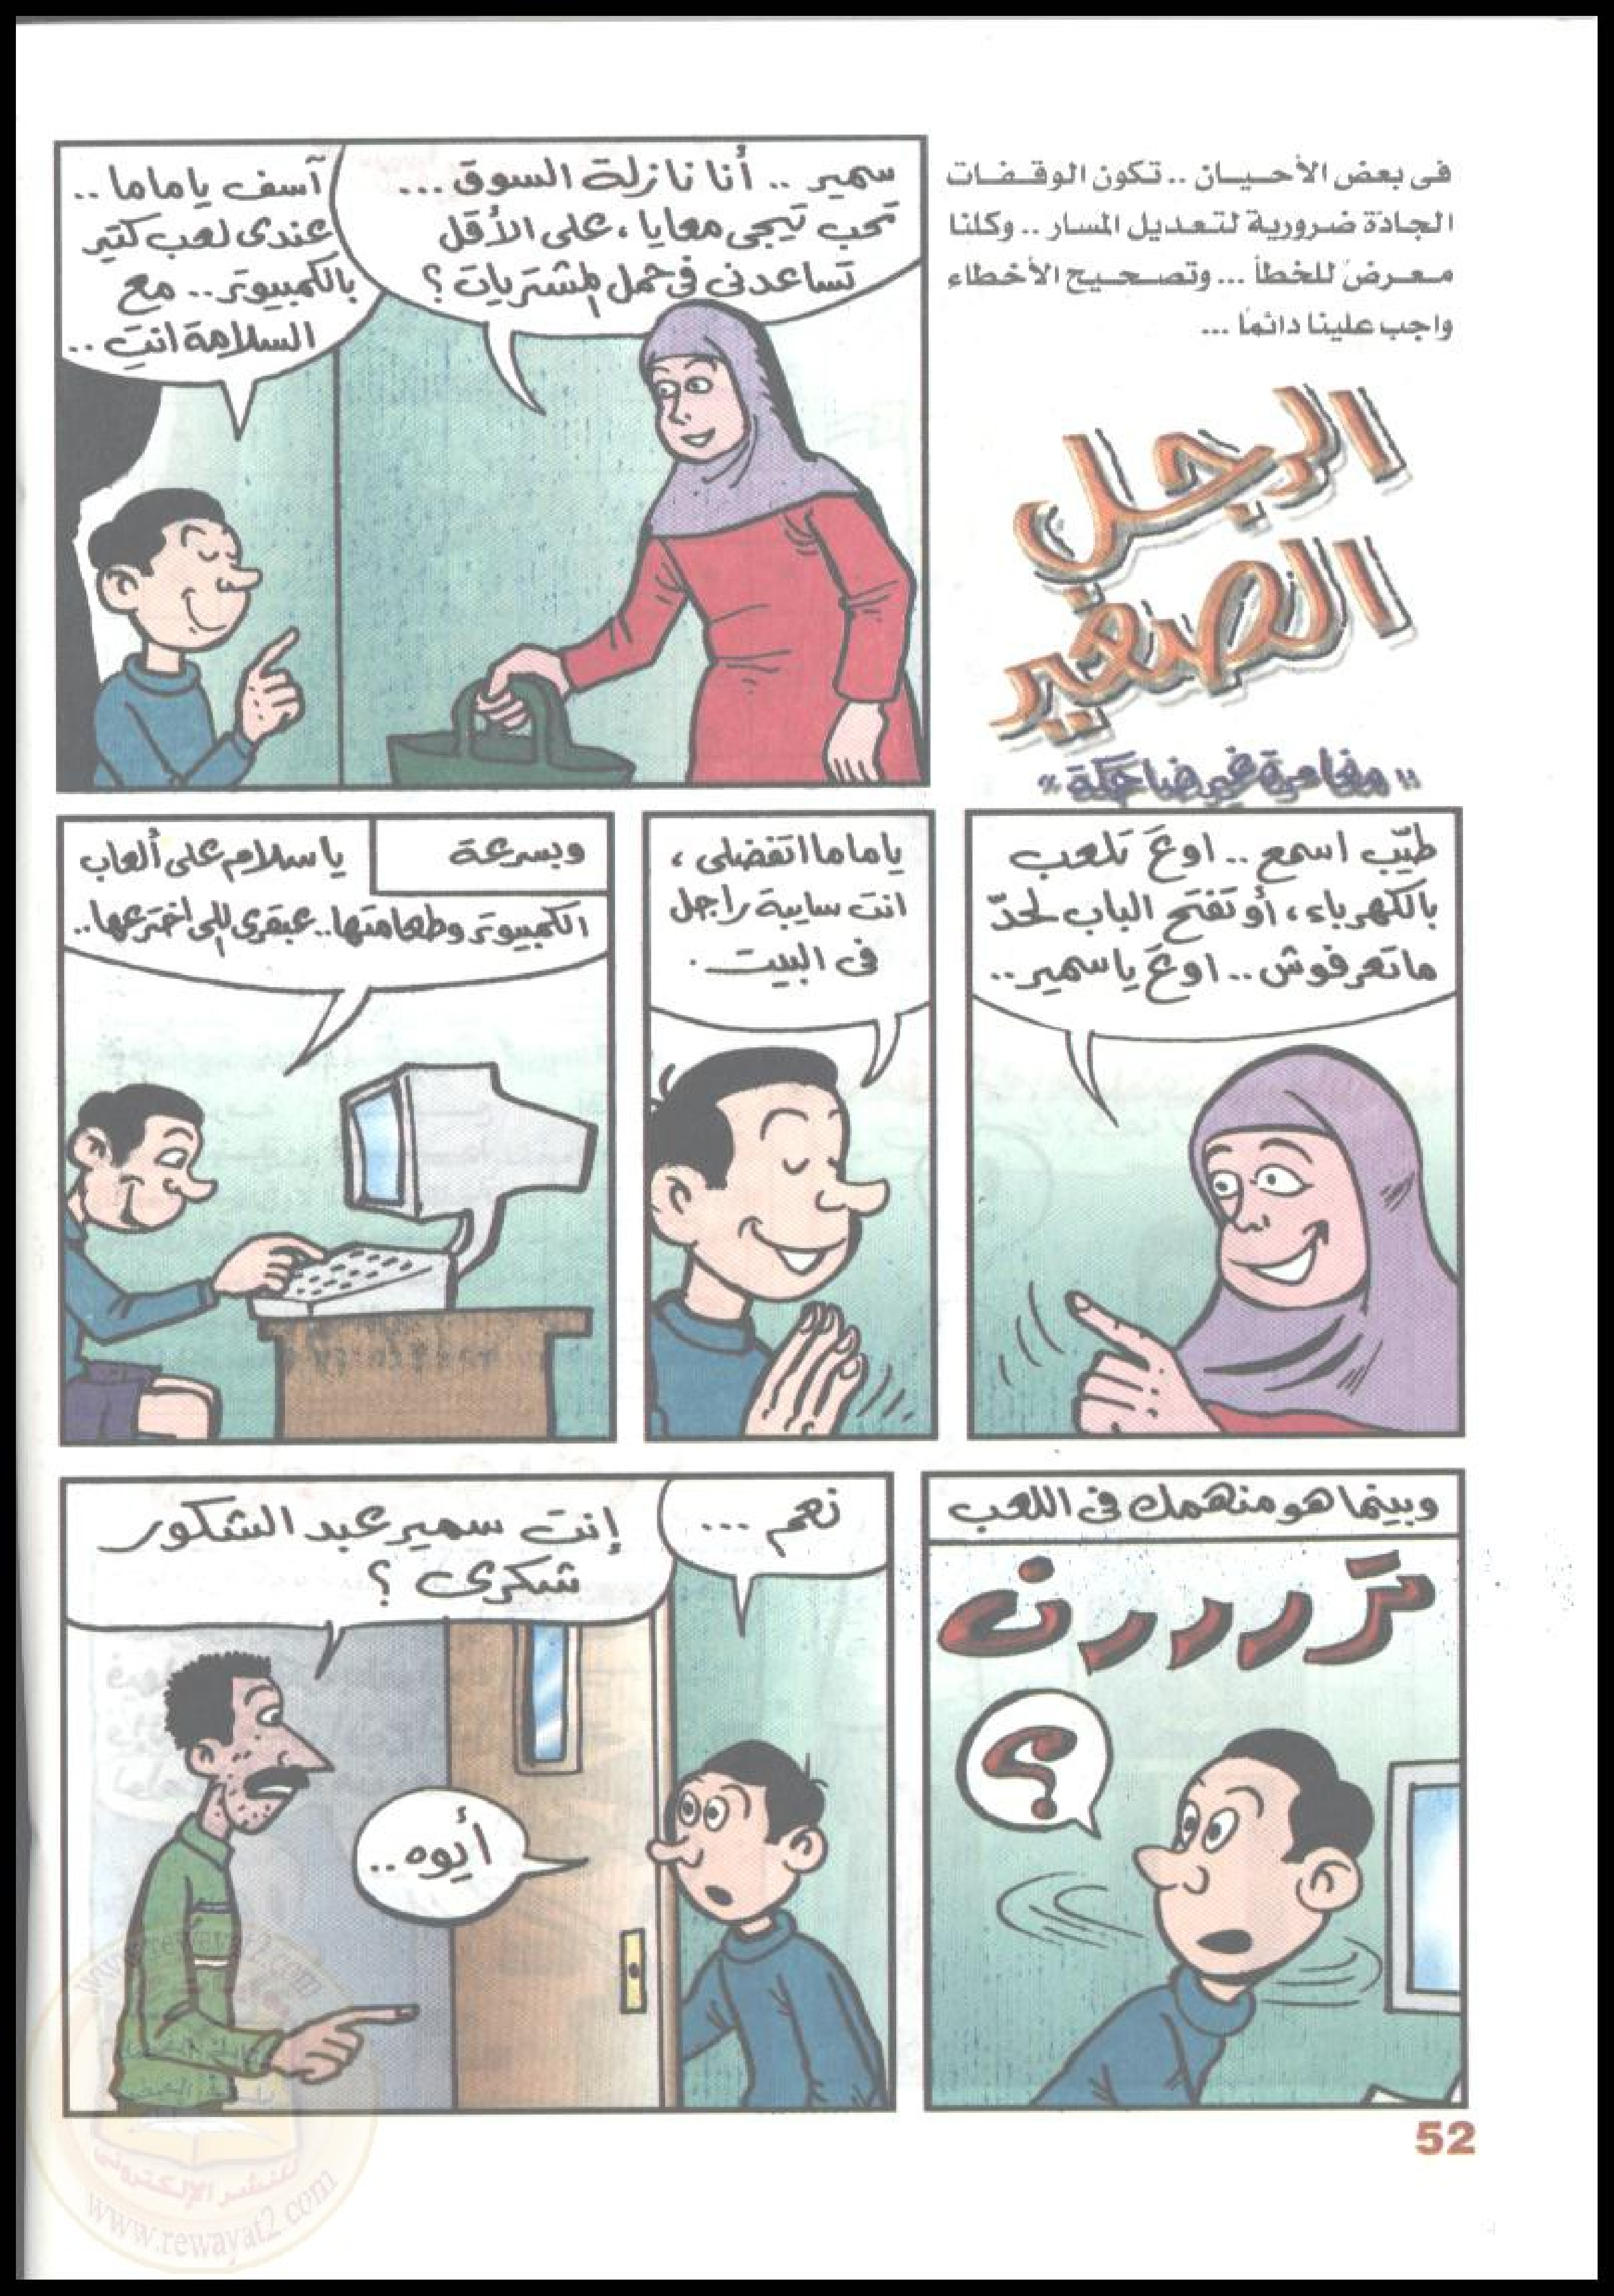 فى بعض الأحيان .. تكون الوقفات
الجادة ضرورية لتعديل المسار .. وكلنا
معرض للخطأ ... وتصحيح الأخطاء
واجب علينا دائمًا ...
الرجل
الصغير
"مغامرة غير ضاحكة"
سمير .. أنا نازلة السوق ...
تحب تيجى معايا ، على الأقل
تساعدنى فى حمل المشتريات ؟
آسف يا ماما ..
عندى لعب كتير
بالكمبيوتر .. مع
السلامة انتِ ..
طيّب اسمع .. اوعَ تلعب
بالكهرباء ، أو تفتح الباب لحدّ
ماتعرفوش .. اوعَ يا سمير ..
يا ماما اتفضلى ،
انت سايبة راجل
فى البيت .
وبسرعة
يا سلام على ألعاب
الكمبيوتر وطعامتها .. عبقرى اللى اخترعها ..
وبينما هو منهمك فى اللعب
تررررن
؟
نعم ...
إنت سمير عبد الشكور
شكرى ؟
أيوه ..
52
www.rewayat2.com
للنشر الإلكترونى
www.rewayat2.com